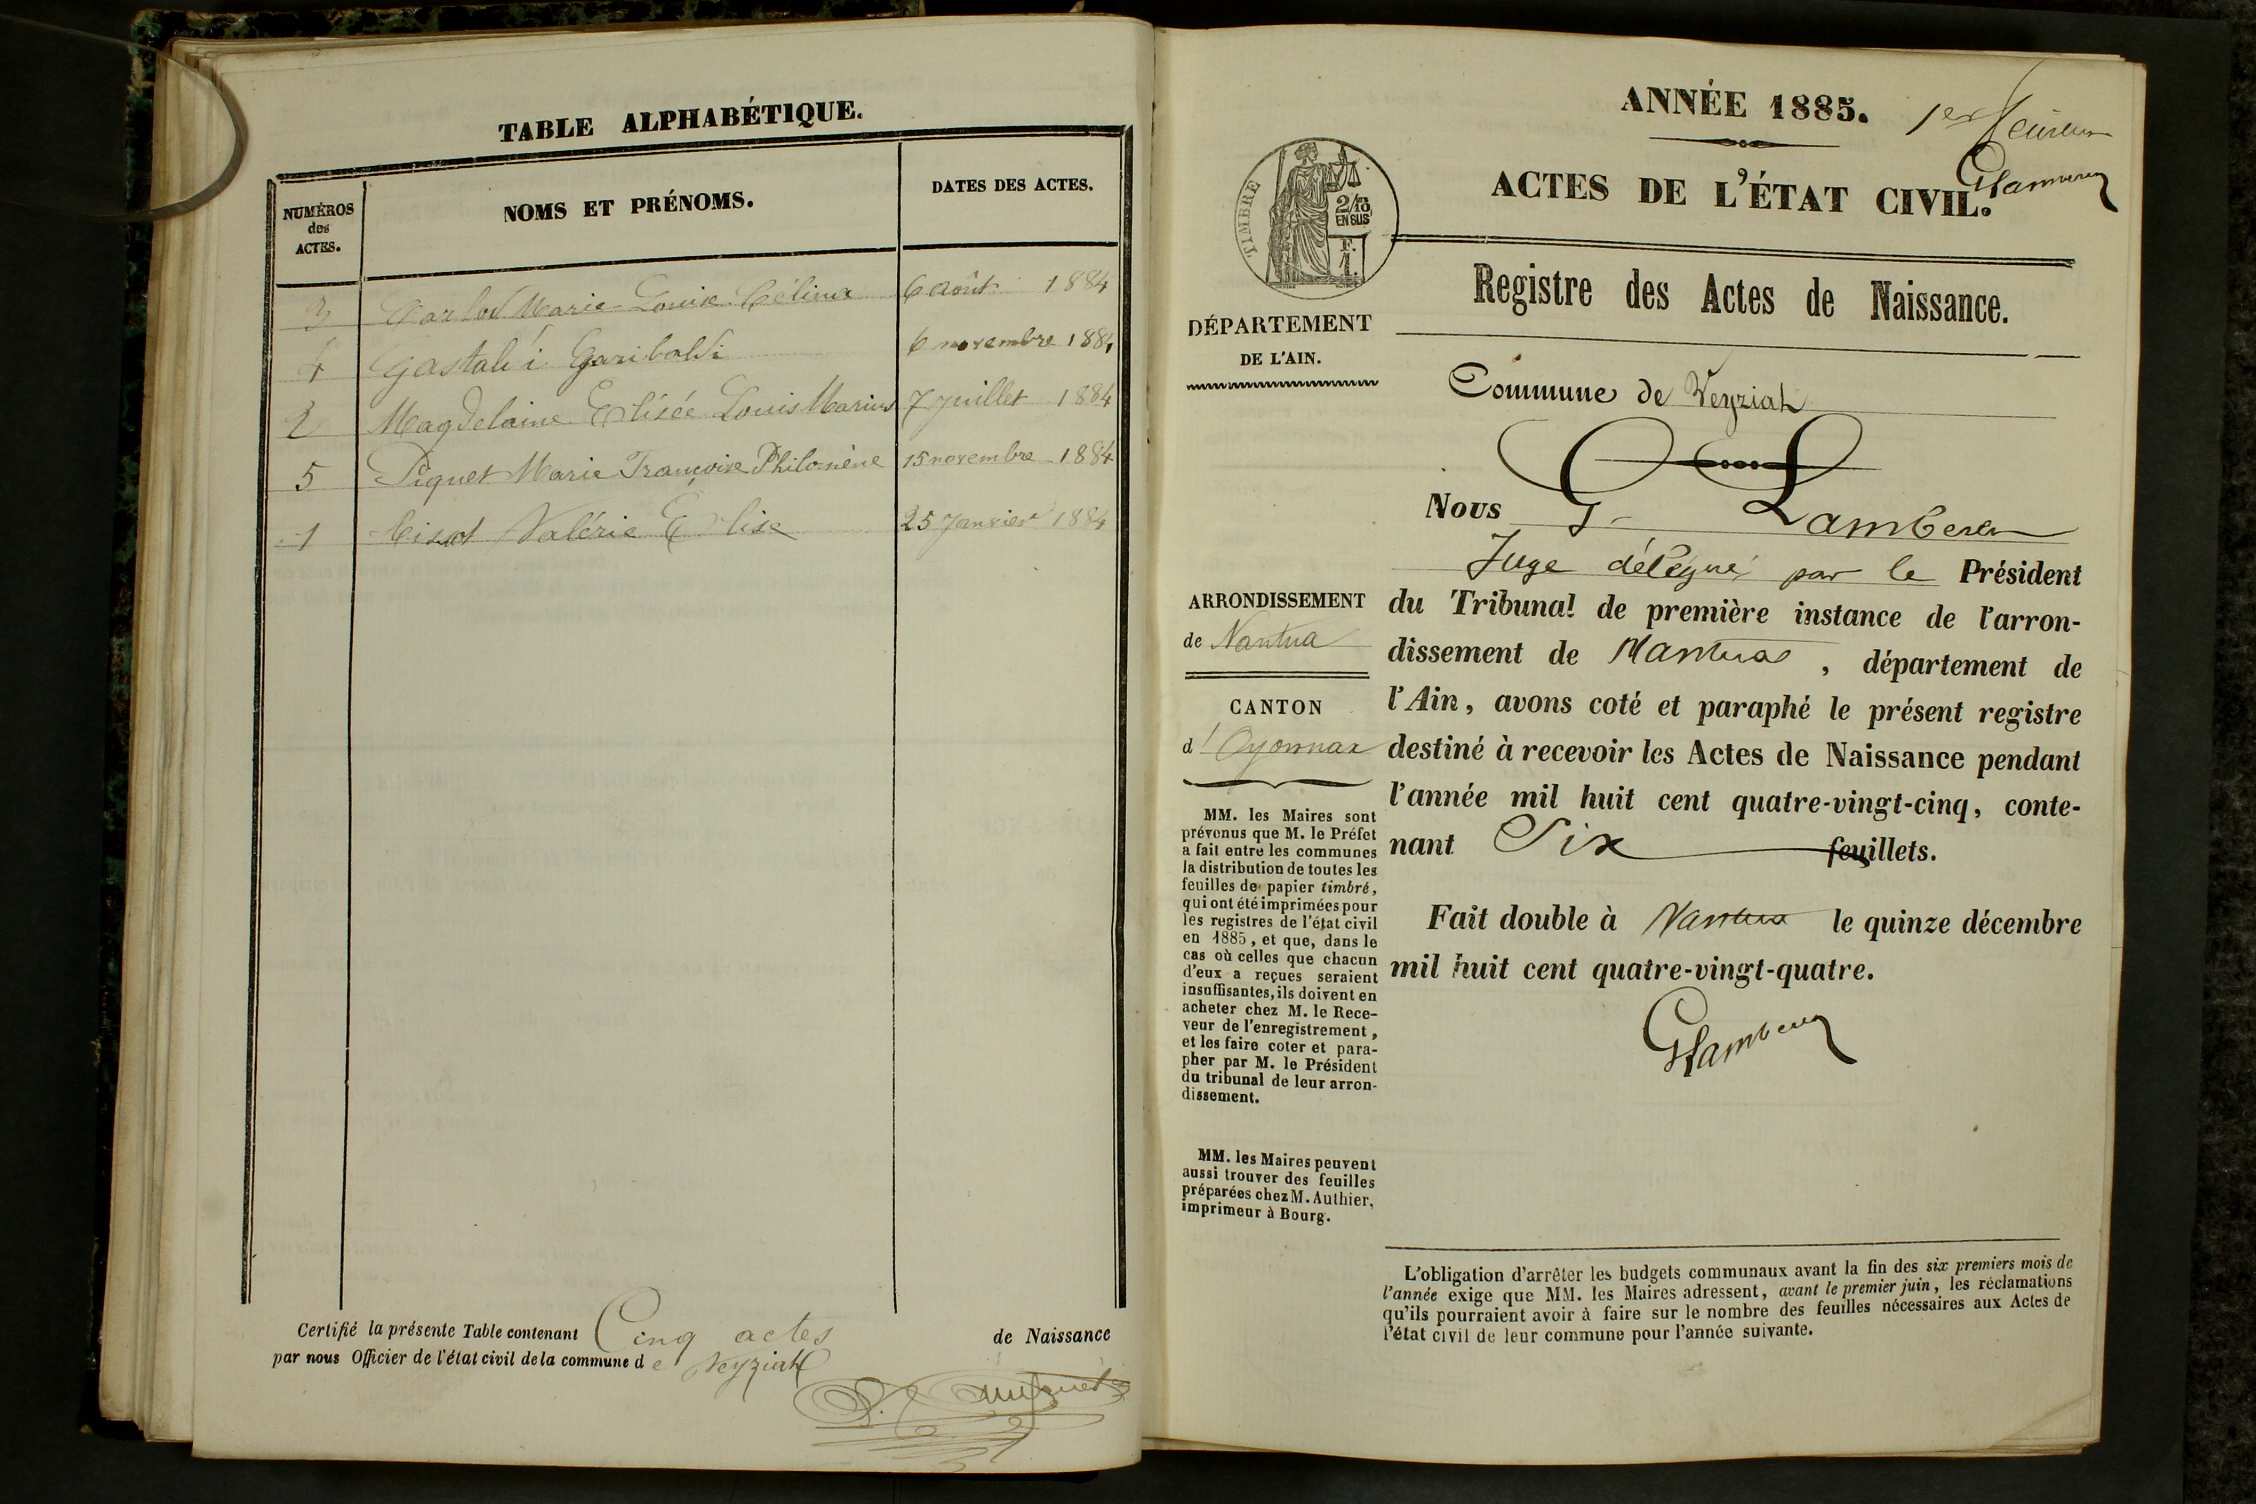 TABLE ALPHABÉTIQUE.
NUMÉROS
des
ACTES.
NOMS ET PRÉNOMS.
DATES DES ACTES.
3 Marie Louise Célina 6 août 1884
4 Gastaldi Garibaldi 6 novembre 1884
2 Magdelaine Elisée Louis Marius 7 juillet 1884
5 Piquet Marie Françoise Philomène 15 novembre 1884
1 Valérie Elise 25 Janvier 1884
Certifié la présente Table contenant Cinq actes de Naissance
par nous Officier de l'état civil de la commune de Veyziat
ANNÉE 1885.
1er
ACTES DE L'ÉTAT CIVIL.
TIMBRE
2/10
EN SUS
F.
1.
Registre des Actes de Naissance.
DÉPARTEMENT
DE L'AIN.
Commune de Veyziat
Nous G. Lambert
Juge délégué par le Président
du Tribunal de première instance de l'arron-
dissement de Nantua, département de
l'Ain, avons coté et paraphé le présent registre
destiné à recevoir les Actes de Naissance pendant
l'année mil huit cent quatre-vingt-cinq, conte-
nant Six feuillets.
Fait double à Nantua le quinze décembre
mil huit cent quatre-vingt-quatre.
ARRONDISSEMENT
de Nantua
CANTON
d'Oyonnax
MM. les Maires sont
prévenus que M. le Préfet
a fait entre les communes
la distribution de toutes les
feuilles de papier timbré,
qui ont été imprimées pour
les registres de l'état civil
en 1885, et que, dans le
cas où celles que chacun
d'eux a reçues seraient
insuffisantes, ils doivent en
acheter chez M. le Rece-
veur de l'enregistrement,
et les faire coter et para-
pher par M. le Président
du tribunal de leur arron-
dissement.
MM. les Maires peuvent
aussi trouver des feuilles
préparées chez M. Authier,
imprimeur à Bourg.
L'obligation d'arrêter les budgets communaux avant la fin des six premiers mois de
l'année exige que MM. les Maires adressent, avant le premier juin, les réclamations
qu'ils pourraient avoir à faire sur le nombre des feuilles nécessaires aux Actes de
l'état civil de leur commune pour l'année suivante.